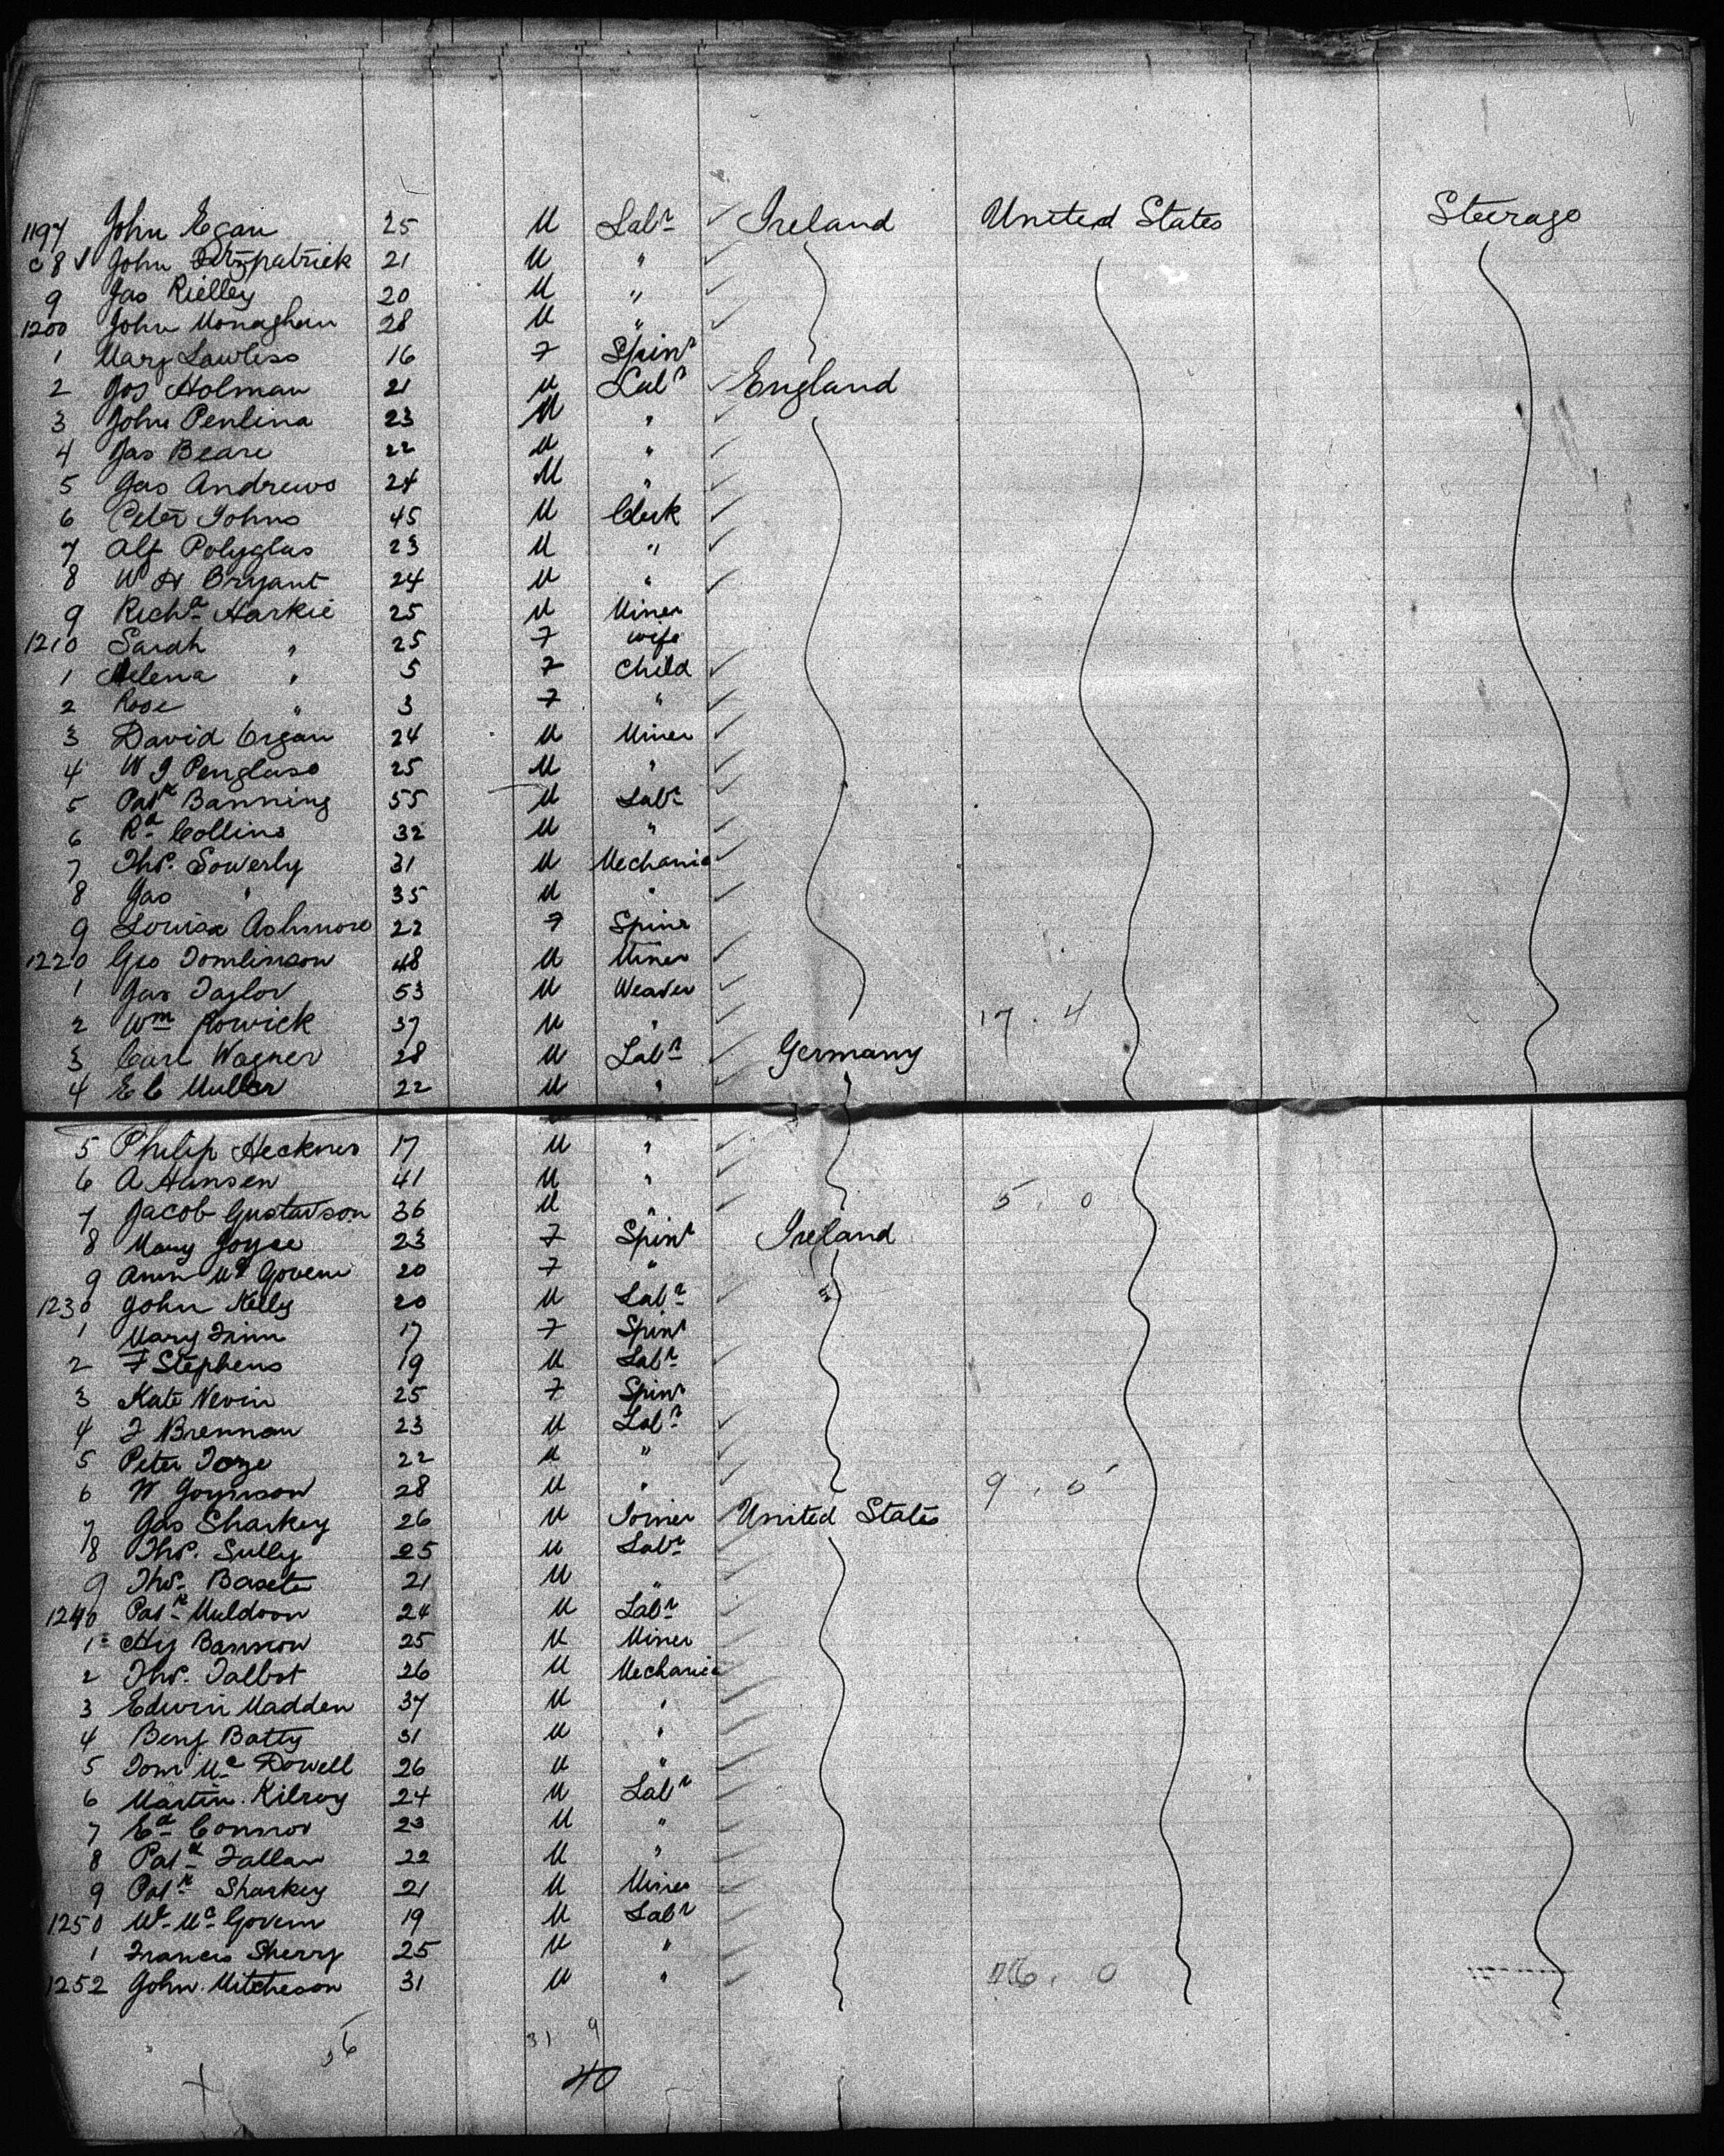 1197 John Egan 25 M Labr Ireland United States Steerage
8 John Fitzpatrick 21 M "
9 Jas Rielley 20 M "
1200 John Monaghan 28 M "
1 Mary Lawless 16 F Spinr
2 Jos Holman 21 M Labr England
3 John Penlina 23 M "
4 Jas Beare 22 M "
5 Jas Andrews 24 M "
6 Peter Johns 45 M Clerk
7 Alf Polyglas 23 M "
8 W H Bryant 24 M "
9 Richd Harkie 25 M Miner
1210 Sarah " 25 F wife
1 Helena " 5 F Child
2 Rose " 3 F "
3 David Organ 24 M Miner
4 W J Penglase 25 M "
5 Patk Banning 55 M Labr
6 Rd Collins 32 M "
7 Thos. Sowerly 31 M Mechanic
8 Jas " 35 M "
9 Louisa Ashmore 22 F Spinr
1220 Geo Tomlinson 48 M Miner
1 Jas Taylor 53 M Weaver
2 Wm Rowick 37 M " 17 . 4
3 Carl Wagner 28 M Labr Germany
4 E C Muller 22 M "
5 Philip Heckner 17 M "
6 A Hansen 41 M "
7 Jacob Gustavson 36 M " 5 . 0
8 Mary Joyce 23 F Spinr Ireland
9 Ann Mc Govern 20 F "
1230 John Kelly 20 M Labr
1 Mary Finn 17 F Spinr
2 F Stephens 19 M Labr
3 Kate Nevin 25 F Spinr
4 J Brennan 23 M Labr
5 Peter 22 M "
6 W 28 M " 9 . 0
7 Jas Sharkey 26 M Joiner United States
8 Thos. Sully 25 M Labr
9 Thos. 21 M "
1240 Patk Muldoon 24 M Labr
1 Hy Bannon 25 M Miner
2 Thos. Talbot 26 M Mechanic
3 Edwin Madden 37 M "
4 Benj Batty 31 M "
5 Tom Mc Dowell 26 M "
6 Martin Kilroy 24 M Labr
7 Ed Connor 23 M "
8 Patk Fallan 22 M "
9 Patk Sharkey 21 M Miner
1250 Wm Mc Govern 19 M Labr
1 Francis Sherry 25 M "
1252 John Mitcheson 31 M "
31 9
40